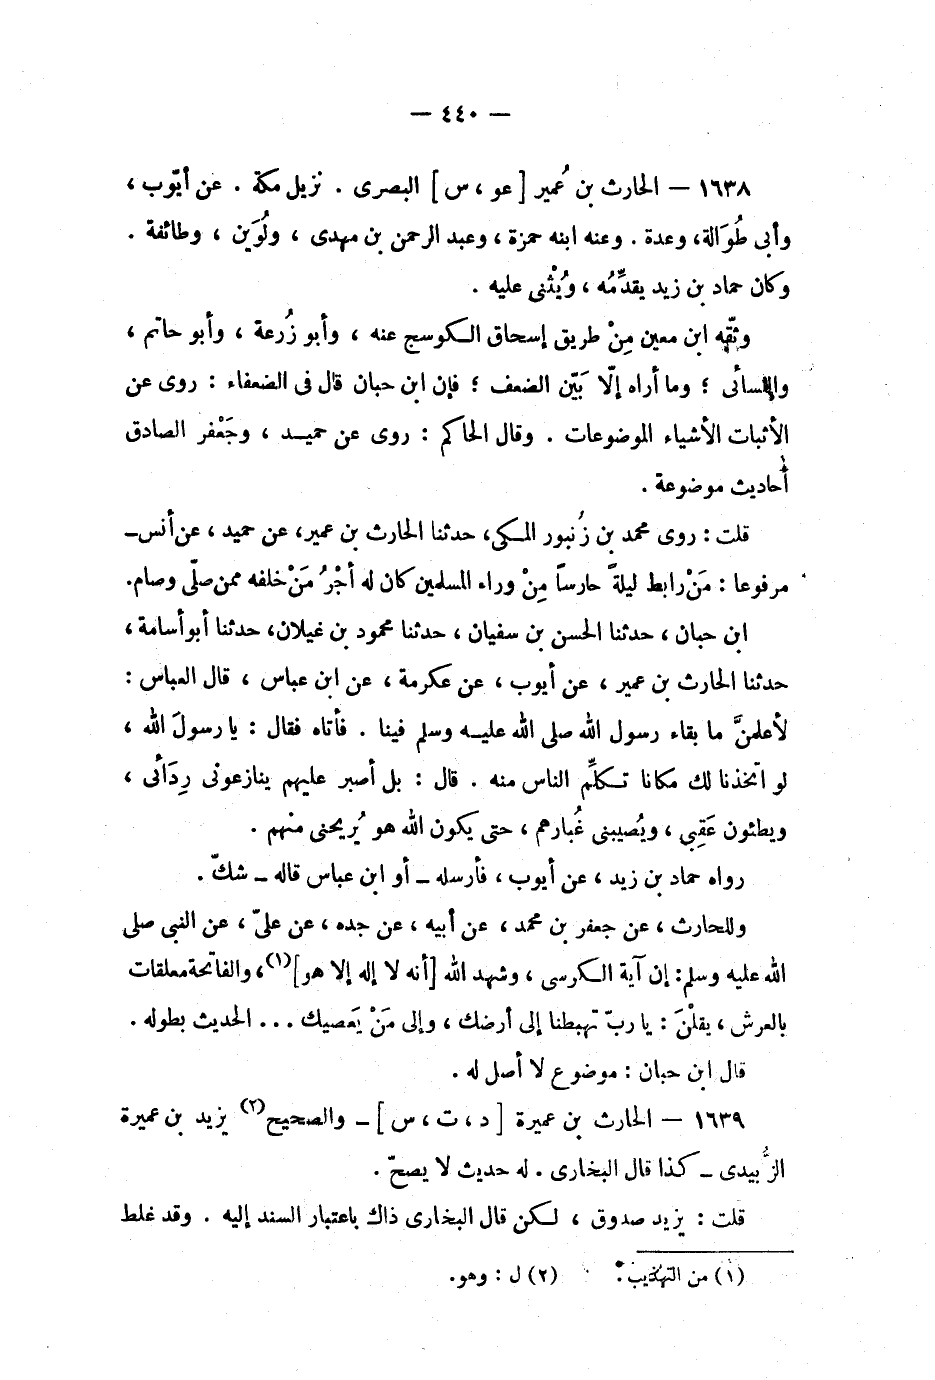 — ٤٤٠ —
١٦٣٨ – الحارث بن عُمير [ عو ، س ] البصرى . نزيل مكة . عن أيّوب ،
وأبى طُوَالة، وعدة . وعنه ابنه حمزة ، وعبد الرحمن بن مهدى ، ولُوَين ، وطائفة .
وكان حماد بن زيد يقدِّمُه ، ويُثْنى عليه .
وثقّه ابن معين مِنْ طريق إسحاق الكوسج عنه ، وأبو زُرعة ، وأبو حاتم ،
والنسأئى ؛ وما أراه إلّا بَيّن الضعف ؛ فإن ابن حبان قال فى الضعفاء : روى عن
الأثبات الأشياء الموضوعات . وقال الحاكم : روى عن حميد ، وجَعْفر الصادق
أحاديث موضوعة .
قلت : روى محمد بن زُنبور المكى، حدثنا الحارث بن عمير، عن حميد ، عن أنس –
مرفوعا : مَنْ رابط ليلةً حارساً مِنْ وراء المسلمين كان له أجْرُ مَنْ خلفه ممن صلّى وصام.
ابن حبان ، حدثنا الحسن بن سفيان ، حدثنا محمود بن غيلان، حدثنا أبو أسامة ،
حدثنا الحارث بن عمير ، عن أيوب ، عن عكرمة ، عن ابن عباس ، قال العباس :
لأعلمنَّ ما بقاء رسول الله صلى الله عليه وسلم فينا . فأتاه فقال : يا رسولَ الله ،
لو اتخذنا لك مكانا تكلِّم الناس منه . قال : بل أصبر عليهم ينازعونى رِدَائى ،
ويطئون عَقِبى ، ويُصيبنى غُبارهم ، حتى يكون الله هو يُريحنى منهم .
رواه حماد بن زيد ، عن أيوب ، فأرسله – أو ابن عباس قاله – شكّ .
وللحارث ، عن جعفر بن محمد ، عن أبيه ، عن جده ، عن علىّ ، عن النبى صلى
الله عليه وسلم: إن آية الكرسى ، وشهد الله [أنه لا إله إلا هو](١)، والفاتحة معلقات
بالعرش ، يقلْنَ : يا ربّ تهبطنا إلى أرضك ، وإلى مَنْ يَعصيك ... الحديث بطوله .
قال ابن حبان : موضوع لا أصل له .
١٦٣٩ – الحارث بن عميرة [ د ، ت ، س ] – والصحيح(٢) يزيد بن عميرة
الزُّبيدى – كذا قال البخارى . له حديث لا يصحّ .
قلت : يزيد صدوق ، لكن قال البخارى ذاك باعتبار السند إليه . وقد غلط
(١) من التهذيب . (٢) ل : وهو.